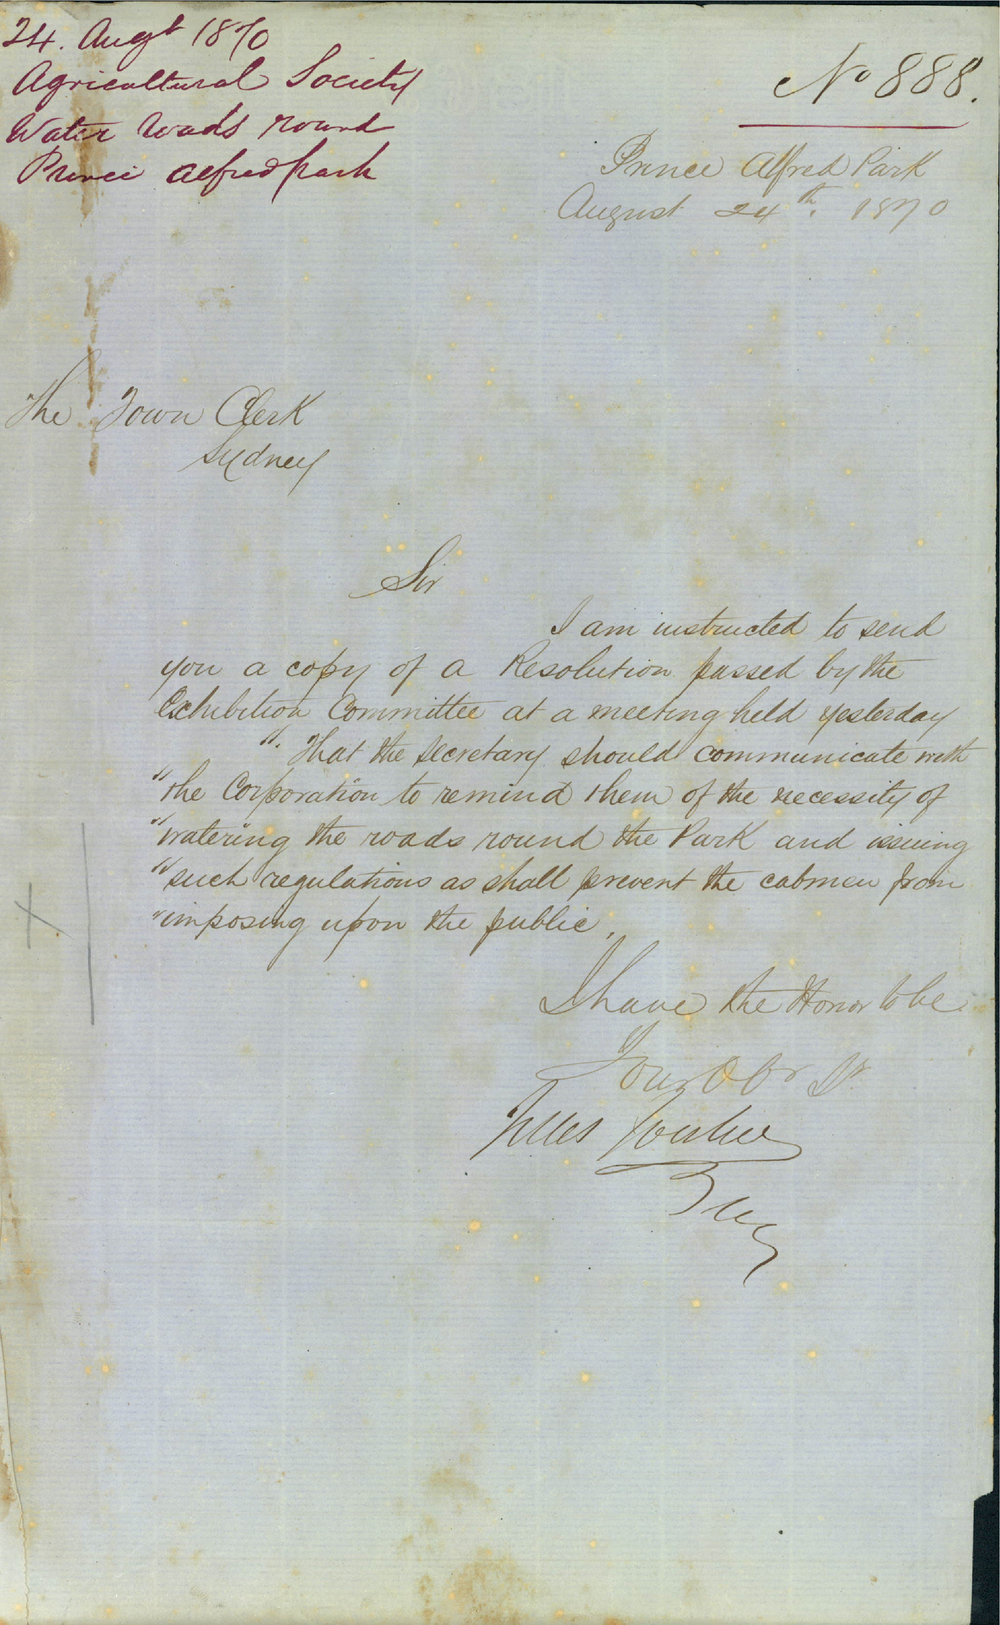 24. Augt 1870
Agricultural Society
Water roads round
Prince Alfred park
No 888.
Prince Alfred Park
August 24th. 1870
The Town Clerk
Sydney
Sir
I am instructed to send
you a copy of a Resolution passed by the
Exhibition Committee at a meeting held yesterday
". That the Secretary should communicate with
"the Corporation to remind them of the necessity of
"watering the roads round the Park and issuing
"such regulations as shall prevent the cabmen from
"imposing upon the public.
I have the Honor to be
Your Obt St
Jules Joubert
Secy